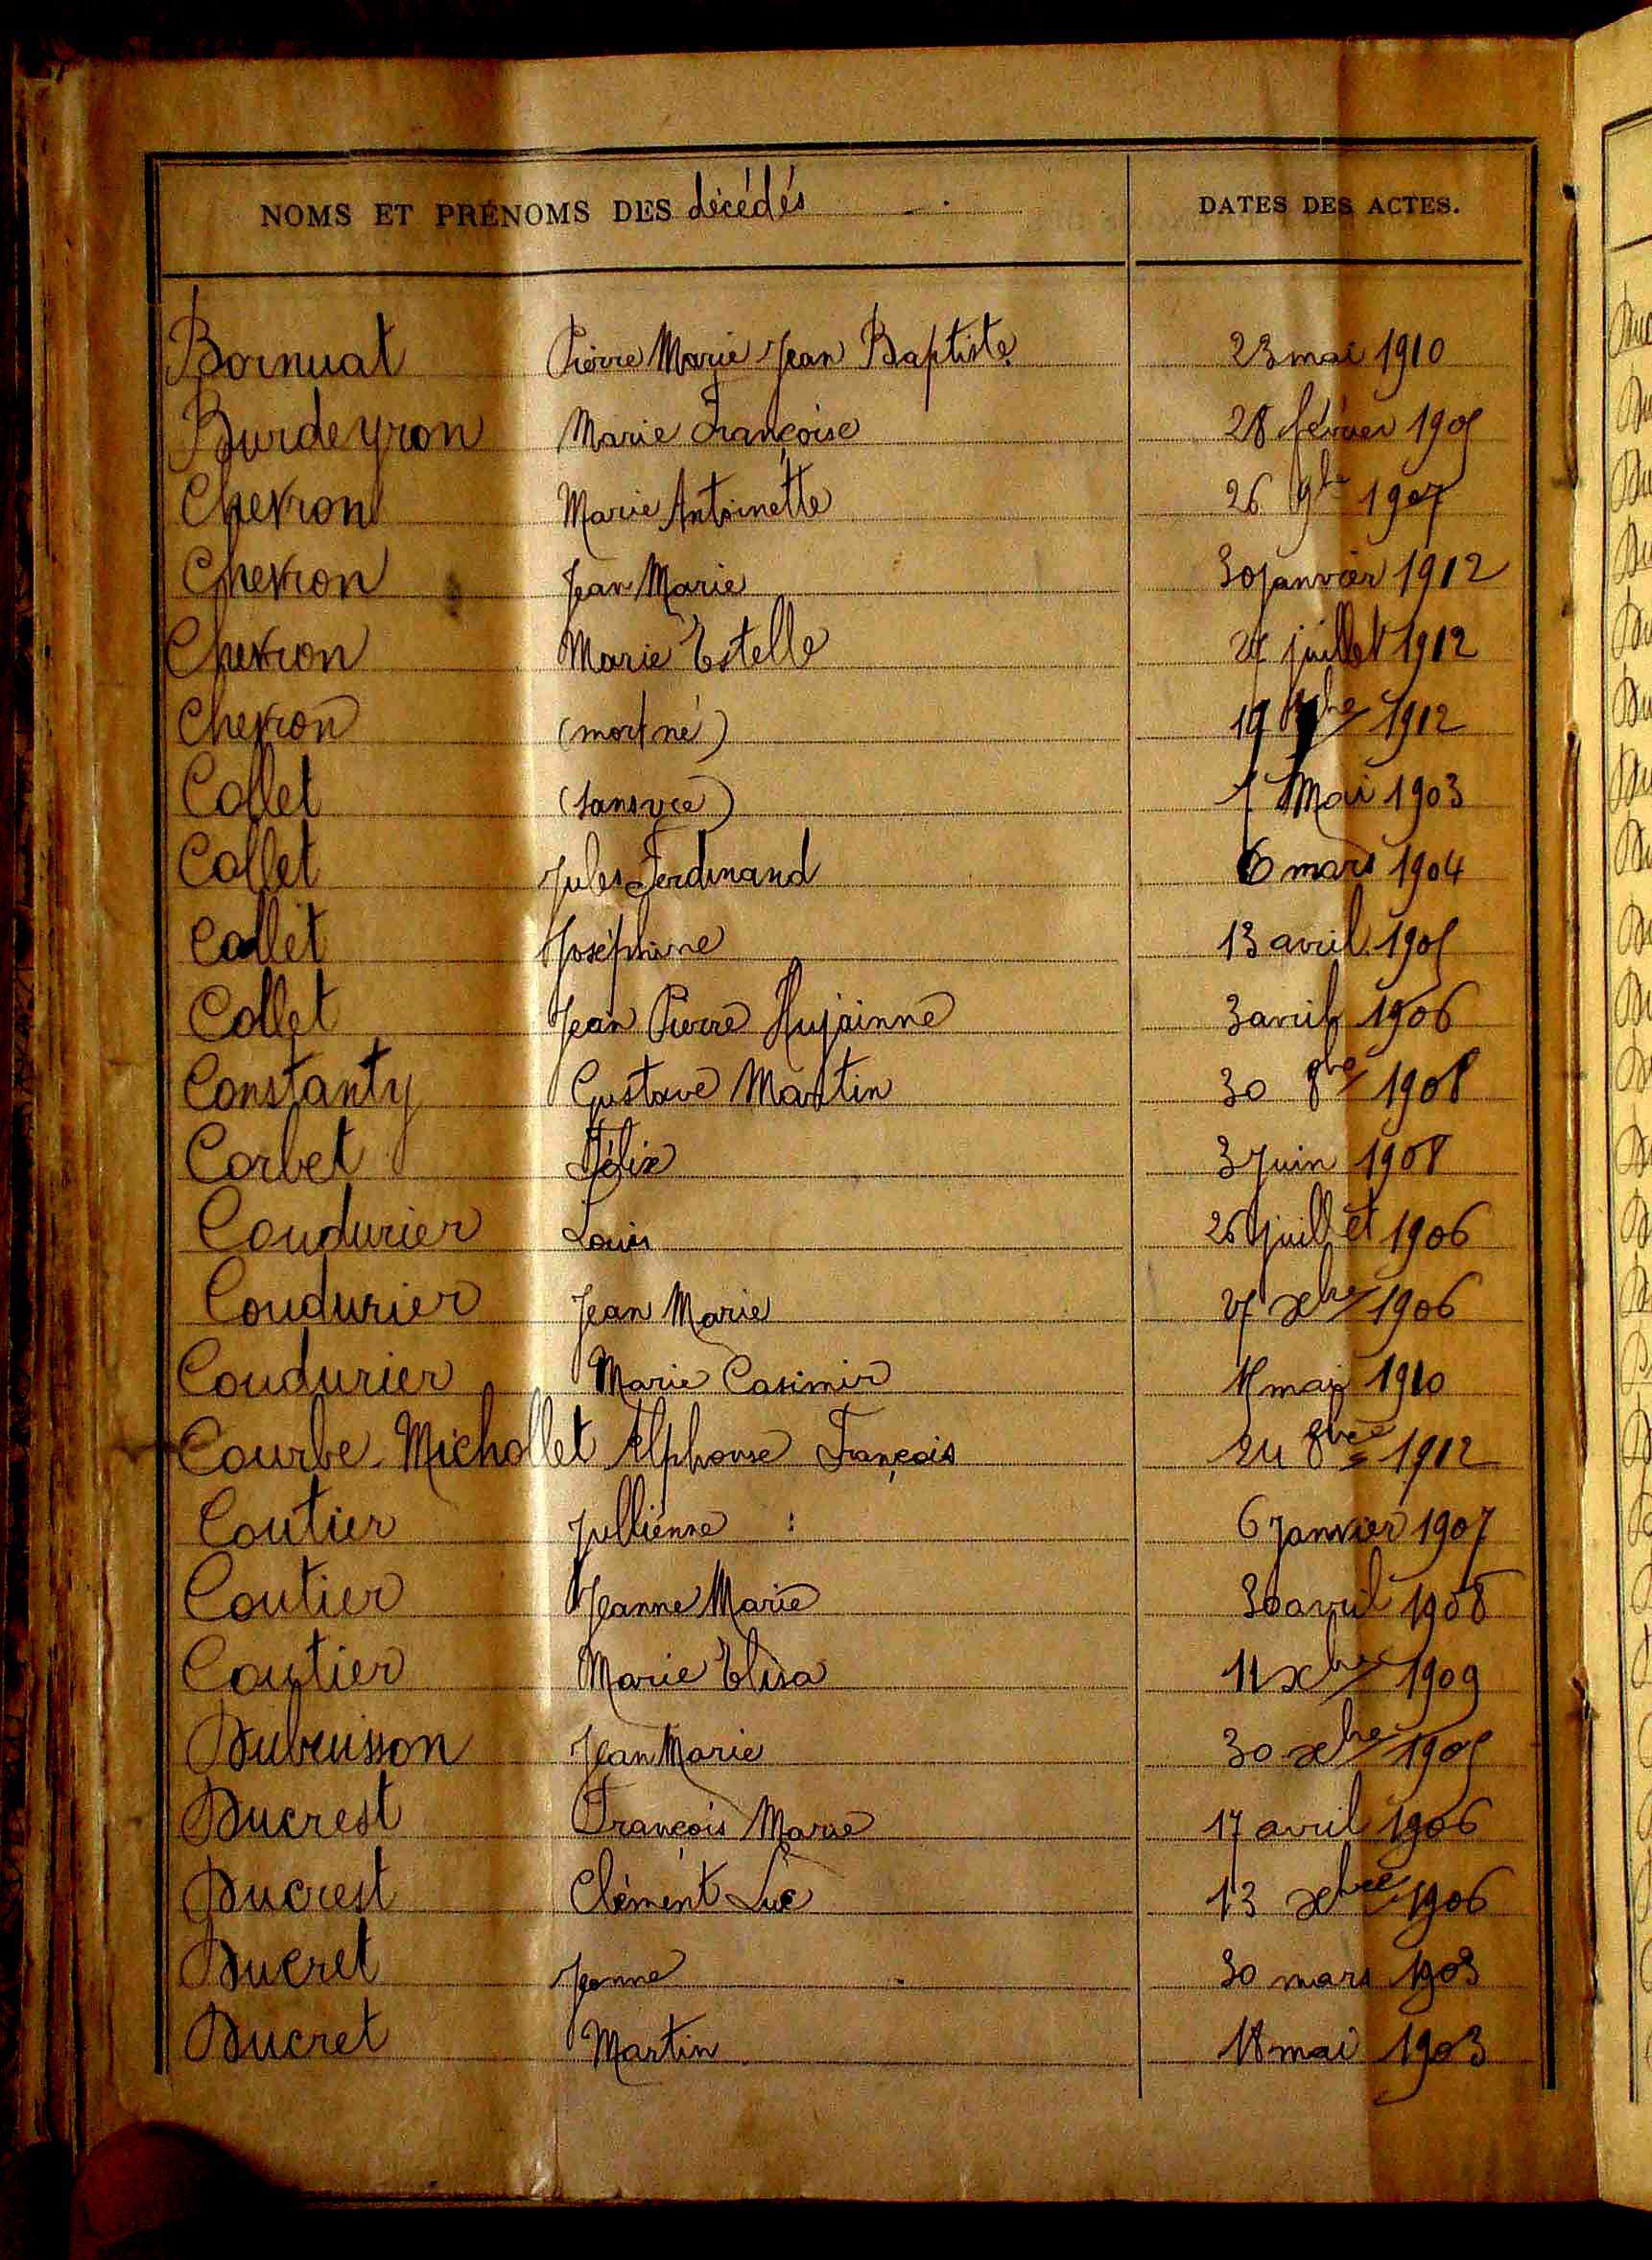 NOMS ET PRÉNOMS DES décédés DATES DES ACTES.
Bornuat Pierre Marie Jean Baptiste 23 mai 1910
Burdeyron Marie Françoise 28 février 1905
Chevron Marie Antoinette 26 9bre 1907
Chevron Jean Marie 30 janvier 1912
Chevron Marie Estelle 27 juillet 1912
Chevron (mort né) 19 1912
Collet (sans vie) 1 Mai 1903
Collet Jules Ferdinand 6 mars 1904
Collet Joséphine 13 avril 1905
Collet Jean Pierre 3 avril 1906
Constanty Gustave Martin 30 8bre 1908
Corbet Félix 3 Juin 1908
Coudurier Louis 26 juillet 1906
Coudurier Jean Marie 27 xbre 1906
Coudurier Marie Casimir mai 1910
Courbe-Michollet Alphonse François 24 8bre 1912
Coutier Jullienne 6 Janvier 1907
Coutier Jeanne Marie 30 avril 1908
Coutier Marie Elisa 11 xbre 1909
Dubuisson Jean Marie 30 xbre 1905
Ducrest François Marie 17 avril 1906
Ducrest Clément Luc 13 xbre 1906
Ducret Jeanne 30 mars 1903
Ducret Martin 18 mai 1903